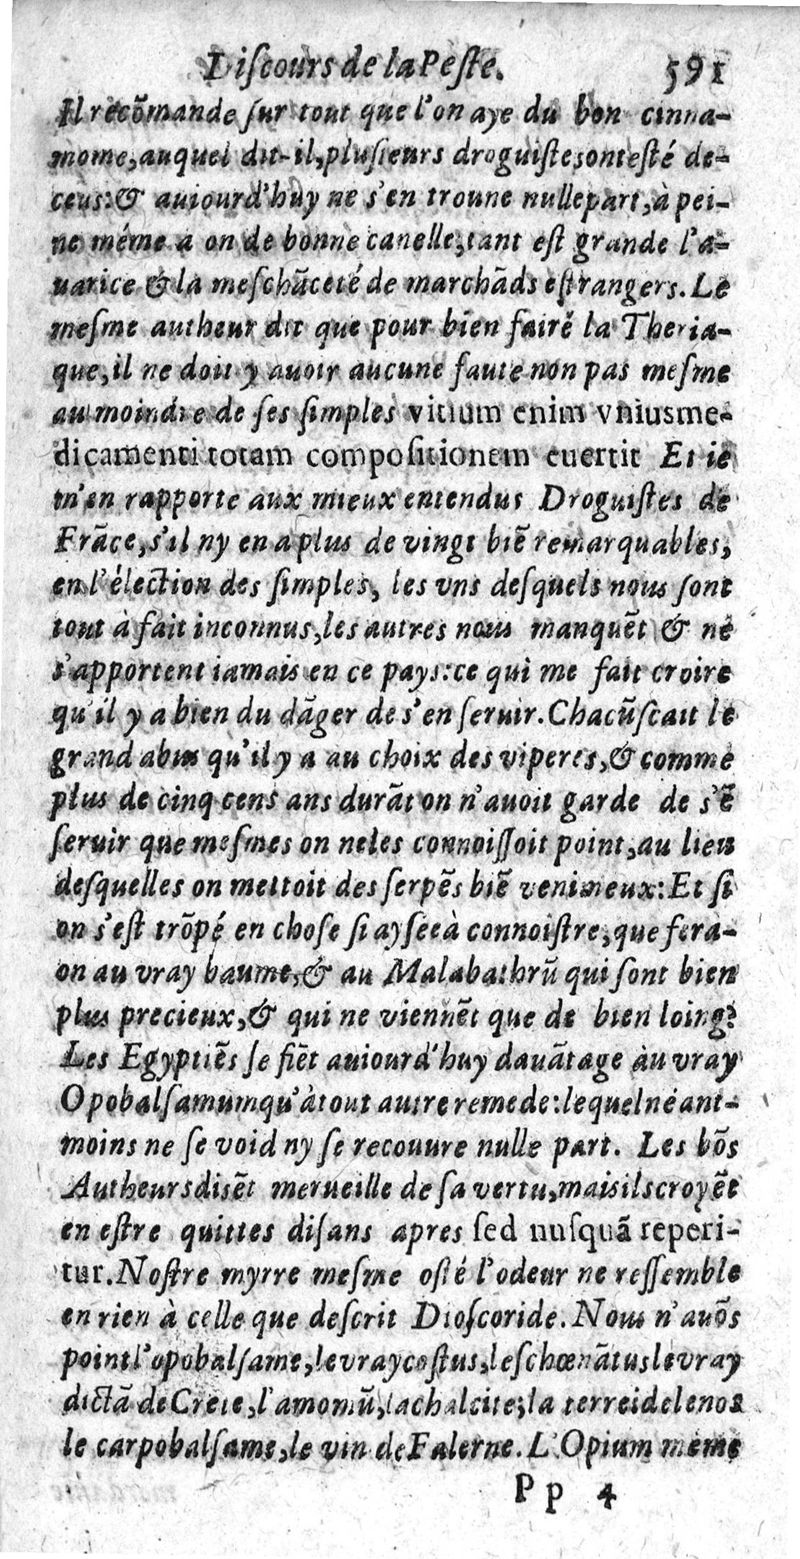 Discours de la Peste. 591
Il recõmande sur tout que l'on aye du bon cinna-
mome, auquel dit-il, plusieurs droguistes ont esté de-
ceus: & auiourd'huy ne s'en trouue nulle part, à pei-
ne méme a on de bonne canelle, tant est grande l'a-
uarice & la meschãceté de marchãds estrangers. Le
mesme autheur dit que pour bien faire la Theria-
que, il ne doit y auoir aucune faute non pas mesme
au moindre de ses simples vitium enim vnius me-
dicamenti totam compositionem euertit Et ie
m'en rapporte aux mieux entendus Droguistes de
Frãce, s'il ny en a plus de vingt biẽ remarquables,
en l'élection des simples, les vns desquels nous sont
tout à fait inconnus, les autres nous manquẽt & ne
s'apportent iamais en ce pays: ce qui me fait croire
qu'il y a bien du dãger de s'en seruir. Chacũ scait le
grand abus qu'il y a au choix des viperes, & comme
plus de cinq cens ans durãt on n'auoit garde de s'ẽ
seruir que mesmes on ne les connoissoit point, au lieu
desquelles on mettoit des serpẽs biẽ venimeux: Et si
on s'est trõpé en chose si aysée à connoistre, que fera-
on au vray baume, & au Malabathrũ qui sont bien
plus precieux, & qui ne viennẽt que de bien loing?
Les Egyptiẽs se fiẽt auiourd'huy dauãtage au vray
Opobalsamum qu'à tout autre remede: lequel néant-
moins ne se void ny se recouure nulle part. Les bõs
Autheurs disẽt merueille de sa vertu, mais ils croyẽt
en estre quittes disans apres sed nusquã reperi-
tur. Nostre myrre mesme osté l'odeur ne ressemble
en rien à celle que descrit Dioscoride. Nous n'auõs
point l'opobalsame, le vray costus, le schœnãtus le vray
dictã de Crete, l'amomũ, la chalcite, la terre idelenos
le carpobalsame, le vin de Falerne. L'Opium meme
Pp 4